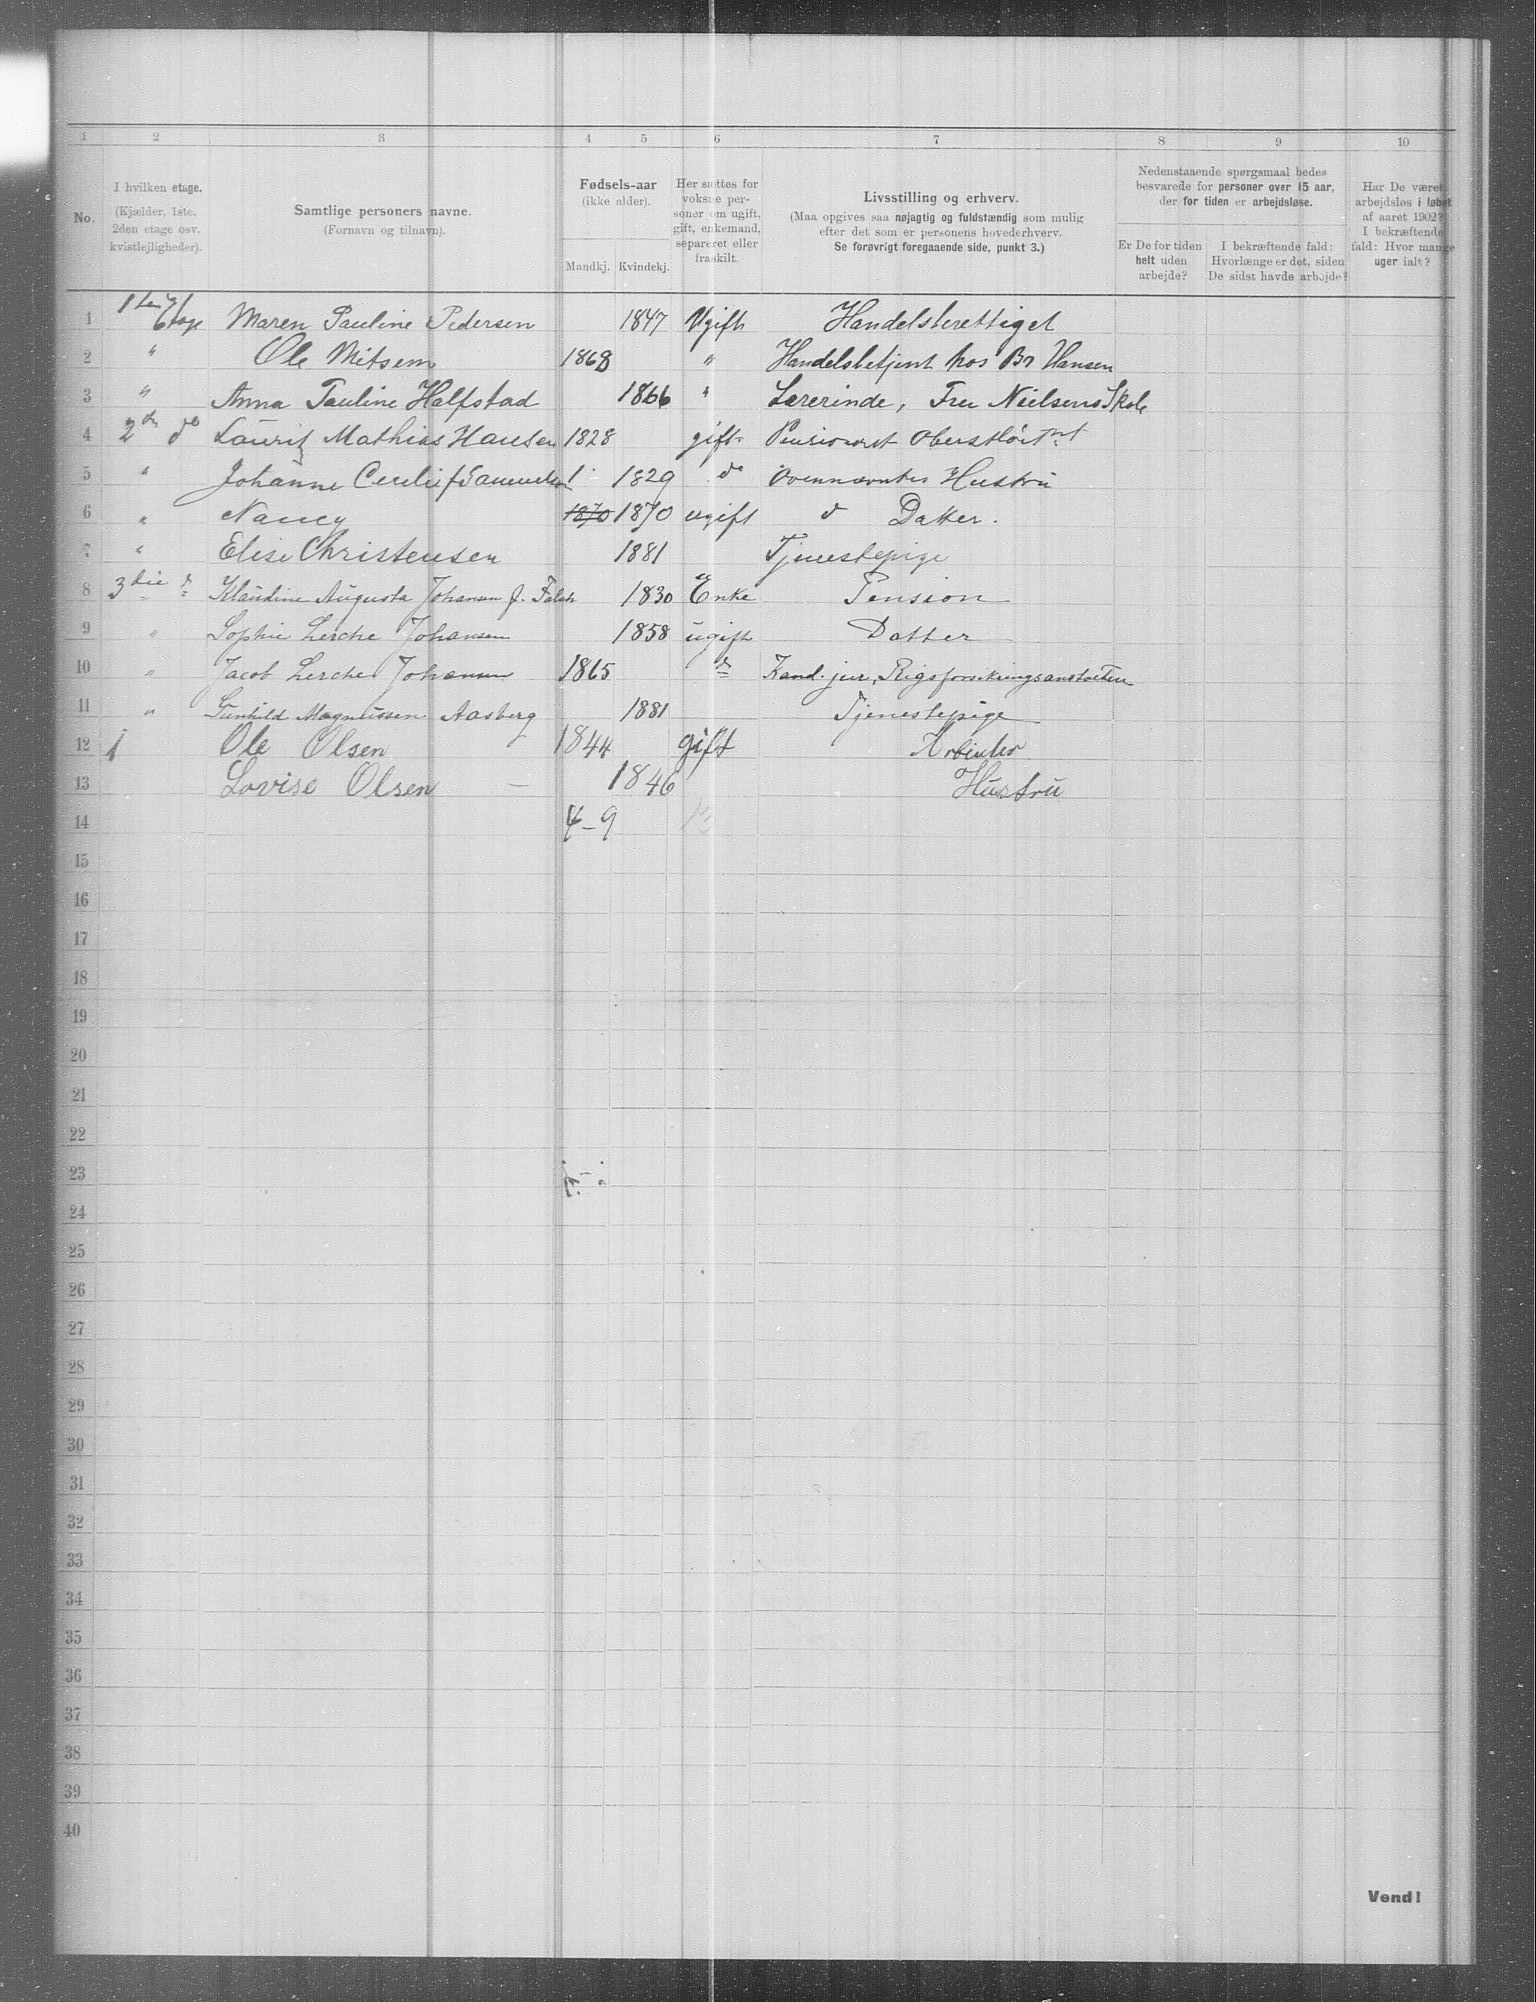 1 2 3 4 5 6 7 8 9 10
No.
I hvilken etage.
(Kjælder, 1ste.
2den etage osv.
kvistlejligheder).
Samtlige personers navne.
(Fornavn og tilnavn).
Fødsels-aar
(ikke alder).
Mandkj. Kvindekj.
Her sættes for
voksne per-
soner om ugift,
gift, enkemand,
separeret eller
fraskilt.
Livsstilling og erhverv.
(Maa opgives saa nøjagtig og fuldstændig som mulig
efter det som er personens hovederhverv.
Se forøvrigt foregaaende side, punkt 3.)
Nedenstaaende spørgsmaal bedes
besvarede for personer over 15 aar,
der for tiden er arbejdsløse.
Er De for tiden
helt uden
arbejde?
I bekræftende fald:
Hvorlænge er det, siden
De sidst havde arbejde?
Har De været
arbejdsløs i løbet
af aaret 1902?
I bekræftende
fald: Hvor mange
uger ialt?
1 1ste Etage Maren Pauline Pedersen 1847 Ugift Handelsberettiget
2 " Ole Mitsem 1868 " Handelsbetjent hos Br Hansen
3 " Anna Pauline Halfstad 1866 " Lærerinde, Fru Nielsens Skole
4 2den do Lauritz Mathias Hansen 1828 gift Pensioneret Oberstløitnt
5 " Johanne f 1829 do Ovennævntes Hustru
6 " Nancy 1870 1870 ugift d Datter.
7 " Elise Christensen 1881 Tjenestepige
8 3die d Klaudine Augusta Johansen f. Falch 1830 Enke Pension
9 " Sophie Lerche Johansen 1858 ugift Datter
10 " Jacob Lerche Johansen 1865 d Kand. jur, Rigsforsikringsanstalten
11 " Gunhild Magnussen Aasberg 1881 Tjenestepige
12 1 Ole Olsen 1844 gift Arbeider
13 Lovise Olsen – 1846 Hustru
14 4–9 13
15
16
17
18
19
20
21
22
23
24
25
26
27
28
29
30
31
32
33
34
35
36
37
38
39
40
Vend!